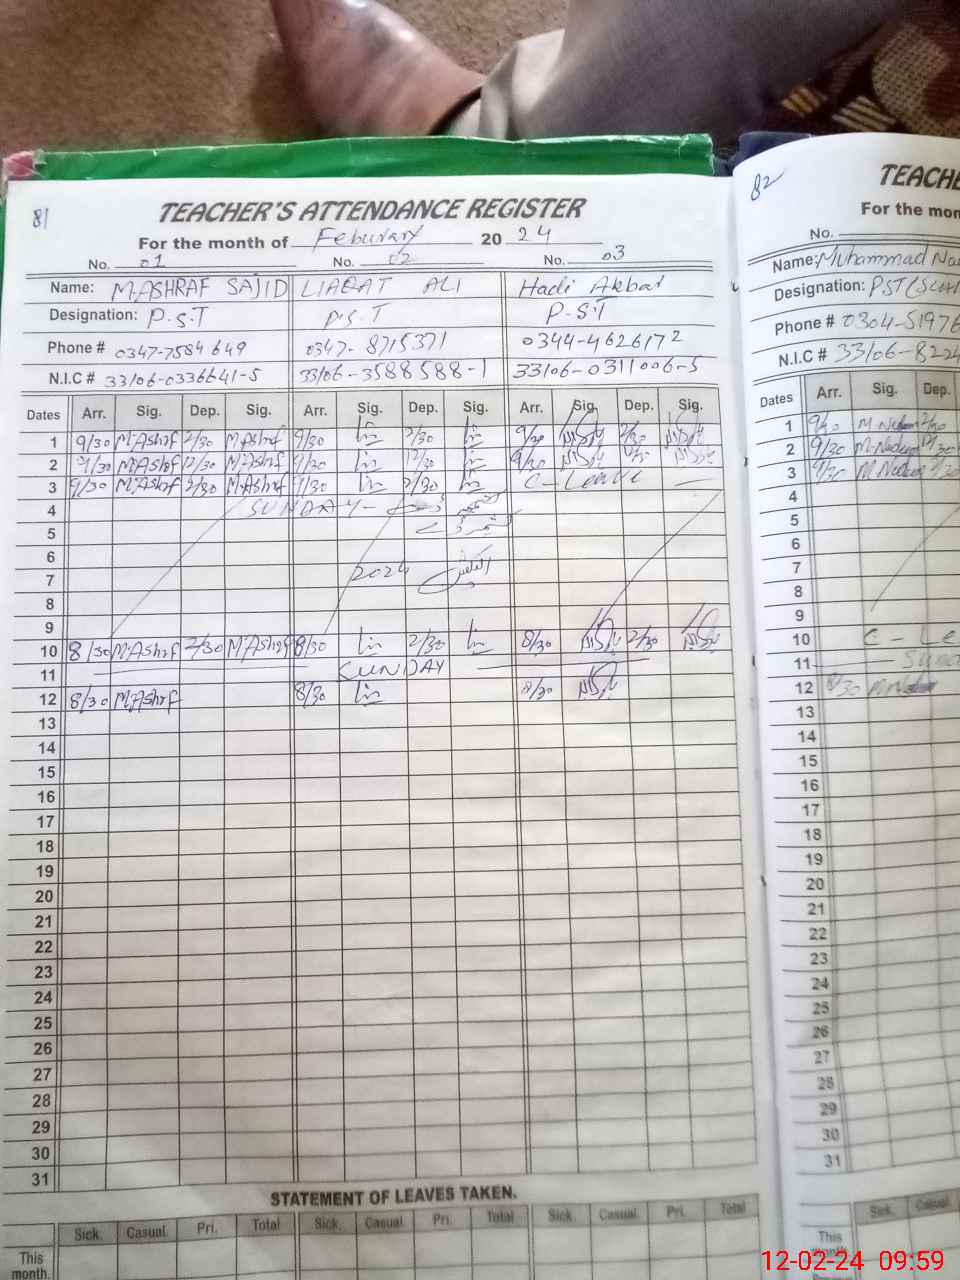 81
TEACHER'S ATTENDANCE REGISTER
For the month of Feburary 20 24
No. 01 No. 02 No. 03
Name: M.ASHRAF SAJID LIAQAT ALI Hadi Akbar
Designation: P.S.T P.S.T P.S.T
Phone # 0347-7584649 0347-8715371 0344-4626172
N.I.C # 33106-0336641-5 33106-3588588-1 33106-0311006-5
Dates Arr. Sig. Dep. Sig. Arr. Sig. Dep. Sig. Arr. Sig. Dep. Sig.
1 9/30 M.Ashrf 2/30 M.Ashrf 9/30 2/30 9/30 2/30
2 9/30 M.Ashrf 12/30 M.Ashrf 9/30 12/30 9/30
3 9/30 M.Ashrf 2/30 M.Ashrf 9/30 2/30 C-Leave
4 SUNDAY
5
6
7 2024
8
9
10 8/30 M.Ashrf 2/30 M.Ashrf 8/30 2/30 8/30 2/30
11 SUNDAY
12 8/30 M.Ashrf 8/30 8/30
13
14
15
16
17
18
19
20
21
22
23
24
25
26
27
28
29
30
31
STATEMENT OF LEAVES TAKEN.
Sick. Casual. Pri. Total Sick. Casual. Pri. Total Sick. Casual. Pri. Total
This
month.
82
TEACHE
For the mon
No.
Name: Muhammad
Designation: PST
Phone # 0304-51976
N.I.C # 33106-8224
Dates Arr. Sig. Dep.
1 9/30
2 9/30
3 9/30
4
5
6
7
8
9
10 C-Le
11
12 8/30
13
14
15
16
17
18
19
20
21
22
23
24
25
26
27
28
29
30
31
Sick. Casual.
This
month.
12-02-24 09:59